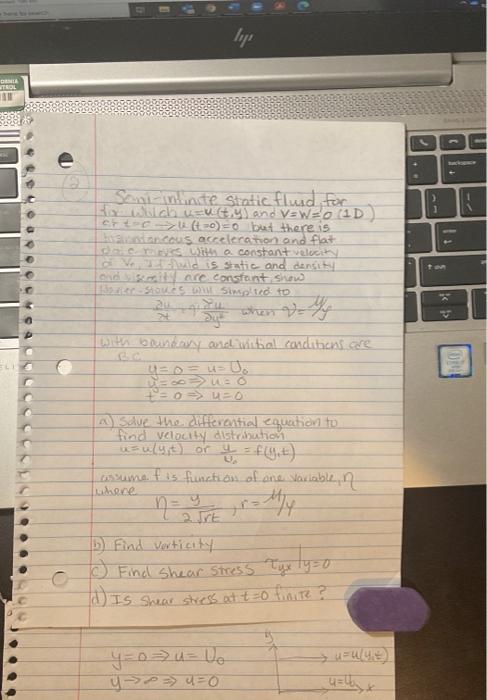 here to search
hp
backspace
2
Semi-infinite static fluid, for
for which u=u(t,y) and V=W=0 (1D)
→ u(t=0)=0 but there is
instantaneous acceleration and flat
moves with a constant velocity
fluid is static and density
and viscosity are constant, show
Navier-stokes will simplied to:
∂u/∂t = ν ∂²u/∂y² when ν = μ/y
with boundary and initial conditions are
BC
y = 0 = u = U₀
y = ∞ ⇒ u = 0
t = 0 ⇒ u = 0
a) Solve the differential equation to
find velocity distribution
u = u(y,t) or u/U₀ = f(y,t)
assume f is function of one variable, η
where
η = y / 2√rt , r = μ/y
b) Find vorticity
c) Find shear stress τyx |y=0
d) Is shear stress at t=0 finite?
y = 0 ⇒ u = U₀
y → ∞ ⇒ u = 0
y
u = u(y,t)
u = U₀
x